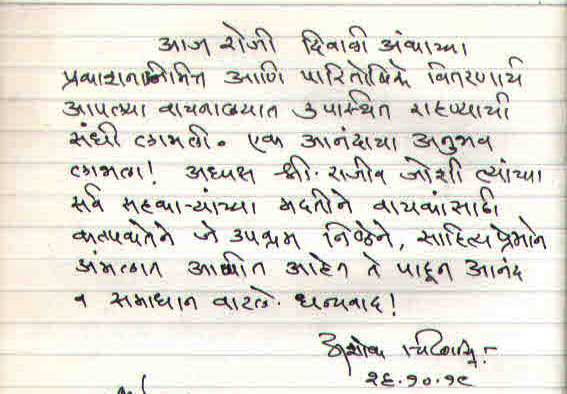 आज रोजी दिवाळी अंकाच्या
प्रकाशनानिमित्त आणि पारितोषिके वितरणार्थ
आपल्या वाचनालयात उपस्थित राहण्याची
संधी लाभली. एक आनंदाचा अनुभव
लाभला! अध्यक्ष श्री. राजीव जोशी त्यांच्या
सर्व सहकाऱ्यांच्या मदतीने वाचकांसाठी
कल्पकतेने जे उपक्रम निष्ठेने, साहित्य प्रेमाने
अंमलात आणीत आहेत ते पाहून आनंद
व समाधान वाटले. धन्यवाद!
अशोक
२६.१०.१८